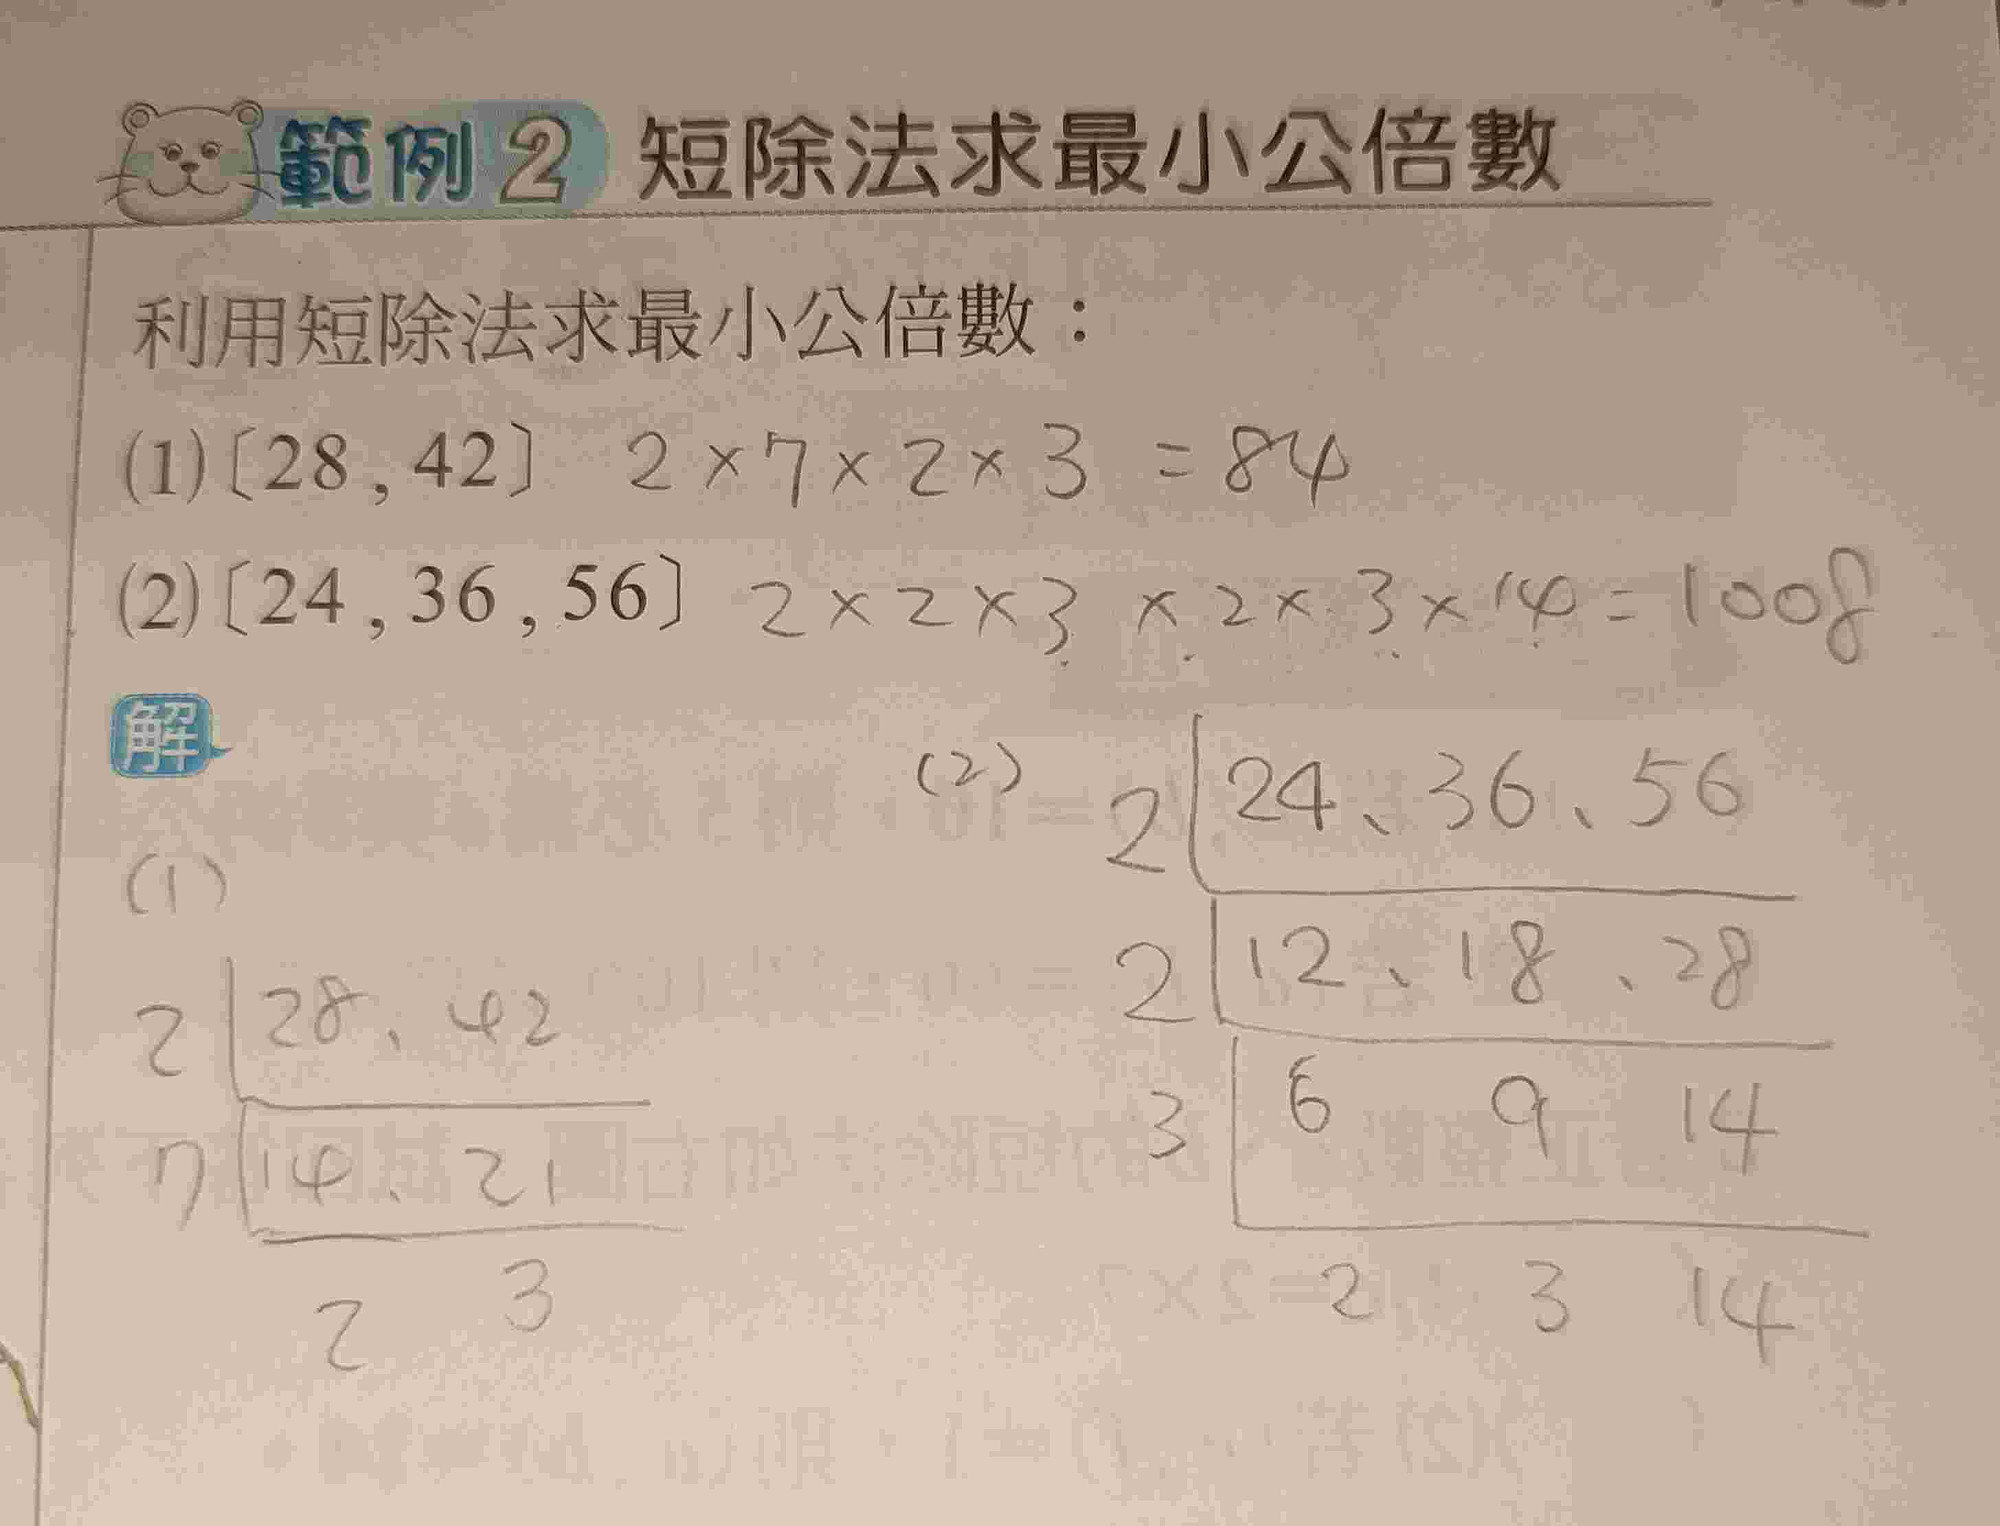 範例2 短除法求最小公倍數
利用短除法求最小公倍數：
(1)〔28 , 42〕 2×7×2×3 =84
(2)〔24 , 36 , 56〕 2×2×3×2×3×14=1008
解
(1)
2 28、42
7 14、21
2 3
(2)
2 24、36、56
2 12、18、28
3 6 9 14
2 3 14